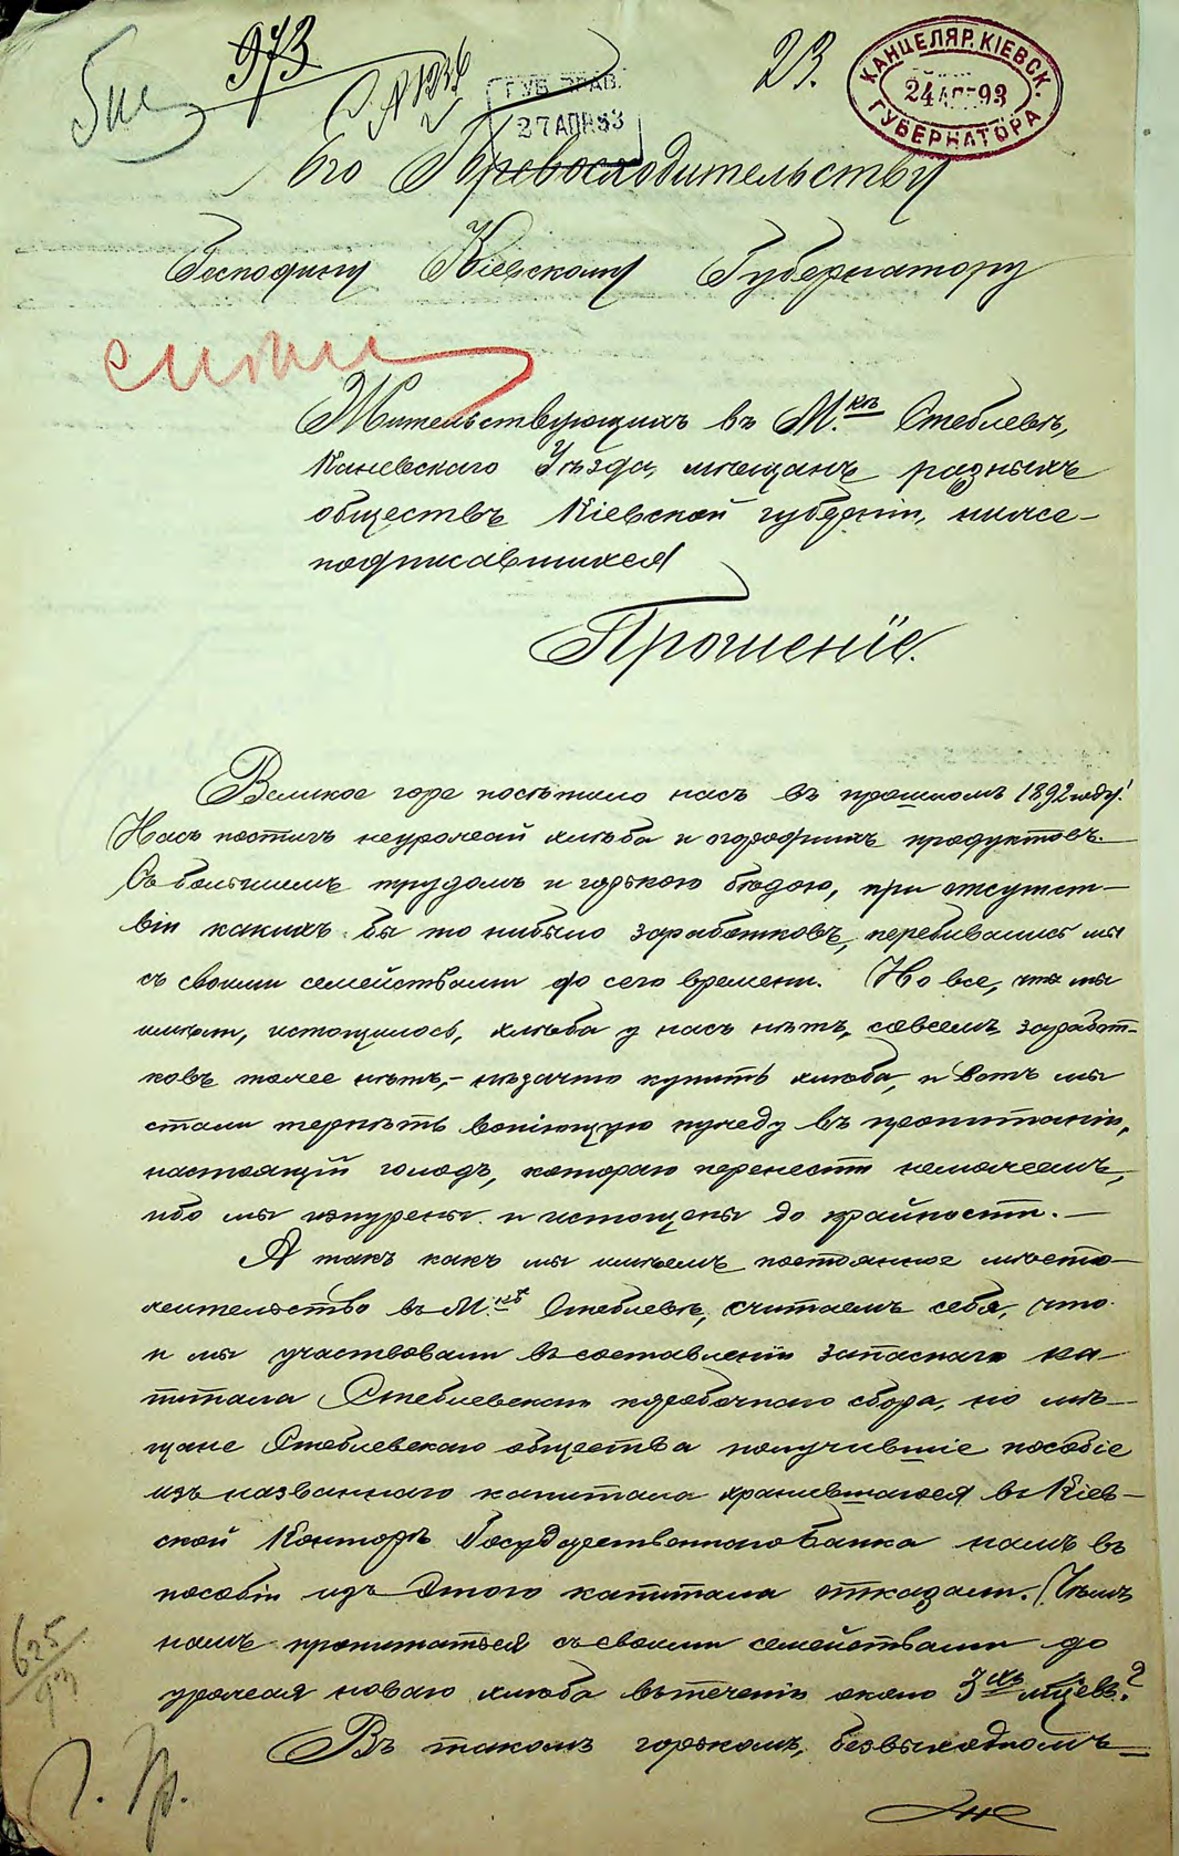 973
23.
КАНЦЕЛЯР. КІЕВСК.
24 АПР 93
ГУБЕРНАТОРА
№ 1236
ГУБ. ПРАВ.
27 АПР 93
Его Превосходительству
Господину Кіевскому Губернатору
Жительствующихъ въ М.кѣ Стеблевѣ,
Каневскаго Уѣзда, мѣщанъ разныхъ
обществъ Кіевской губерніи, ниже-
подписавшихся
Прошеніе.
Великое горе постѣтило насъ въ прошломъ 1892 году!
Насъ постигъ неурожай хлѣба и огородныхъ продуктовъ.
Съ большимъ трудомъ и горькою бѣдою, при отсутст-
віи какихъ бы то нибыло заработковъ, перебивались мы
съ своими семействами до сего времени. Но все, что мы
имѣли, истощилось, хлѣба у насъ нѣтъ, совсемъ заработ-
ковъ тоже нѣтъ,- нѣзачто купить хлѣба, и вотъ мы
стали терпѣть вопіющую нужду въ пропитаніи,
настоящій голодъ, котораго перенести неможемъ,
ибо мы изнурены и истощены до крайности. —
А такъ какъ мы имѣемъ постоянное мѣсто-
жительство въ М.кѣ Стеблевѣ, считаемъ себя, что
и мы участвовали въ составленіи запаснаго ка-
питала Стеблевскаго коробочнаго сбора, но мѣ-
щане Стеблевскаго общества получившіе пособіе
изъ названнаго капитала хранившагося въ Кіев-
ской Конторѣ Государственнаго Банка намъ въ
пособіи изъ этого капитала отказали. Чѣмъ
намъ пропитаться съ своими семействами до
урожая новаго хлѣба въ теченіи около 3хъ мцевъ?
Въ такомъ горькомъ, безвыходномъ
625/93